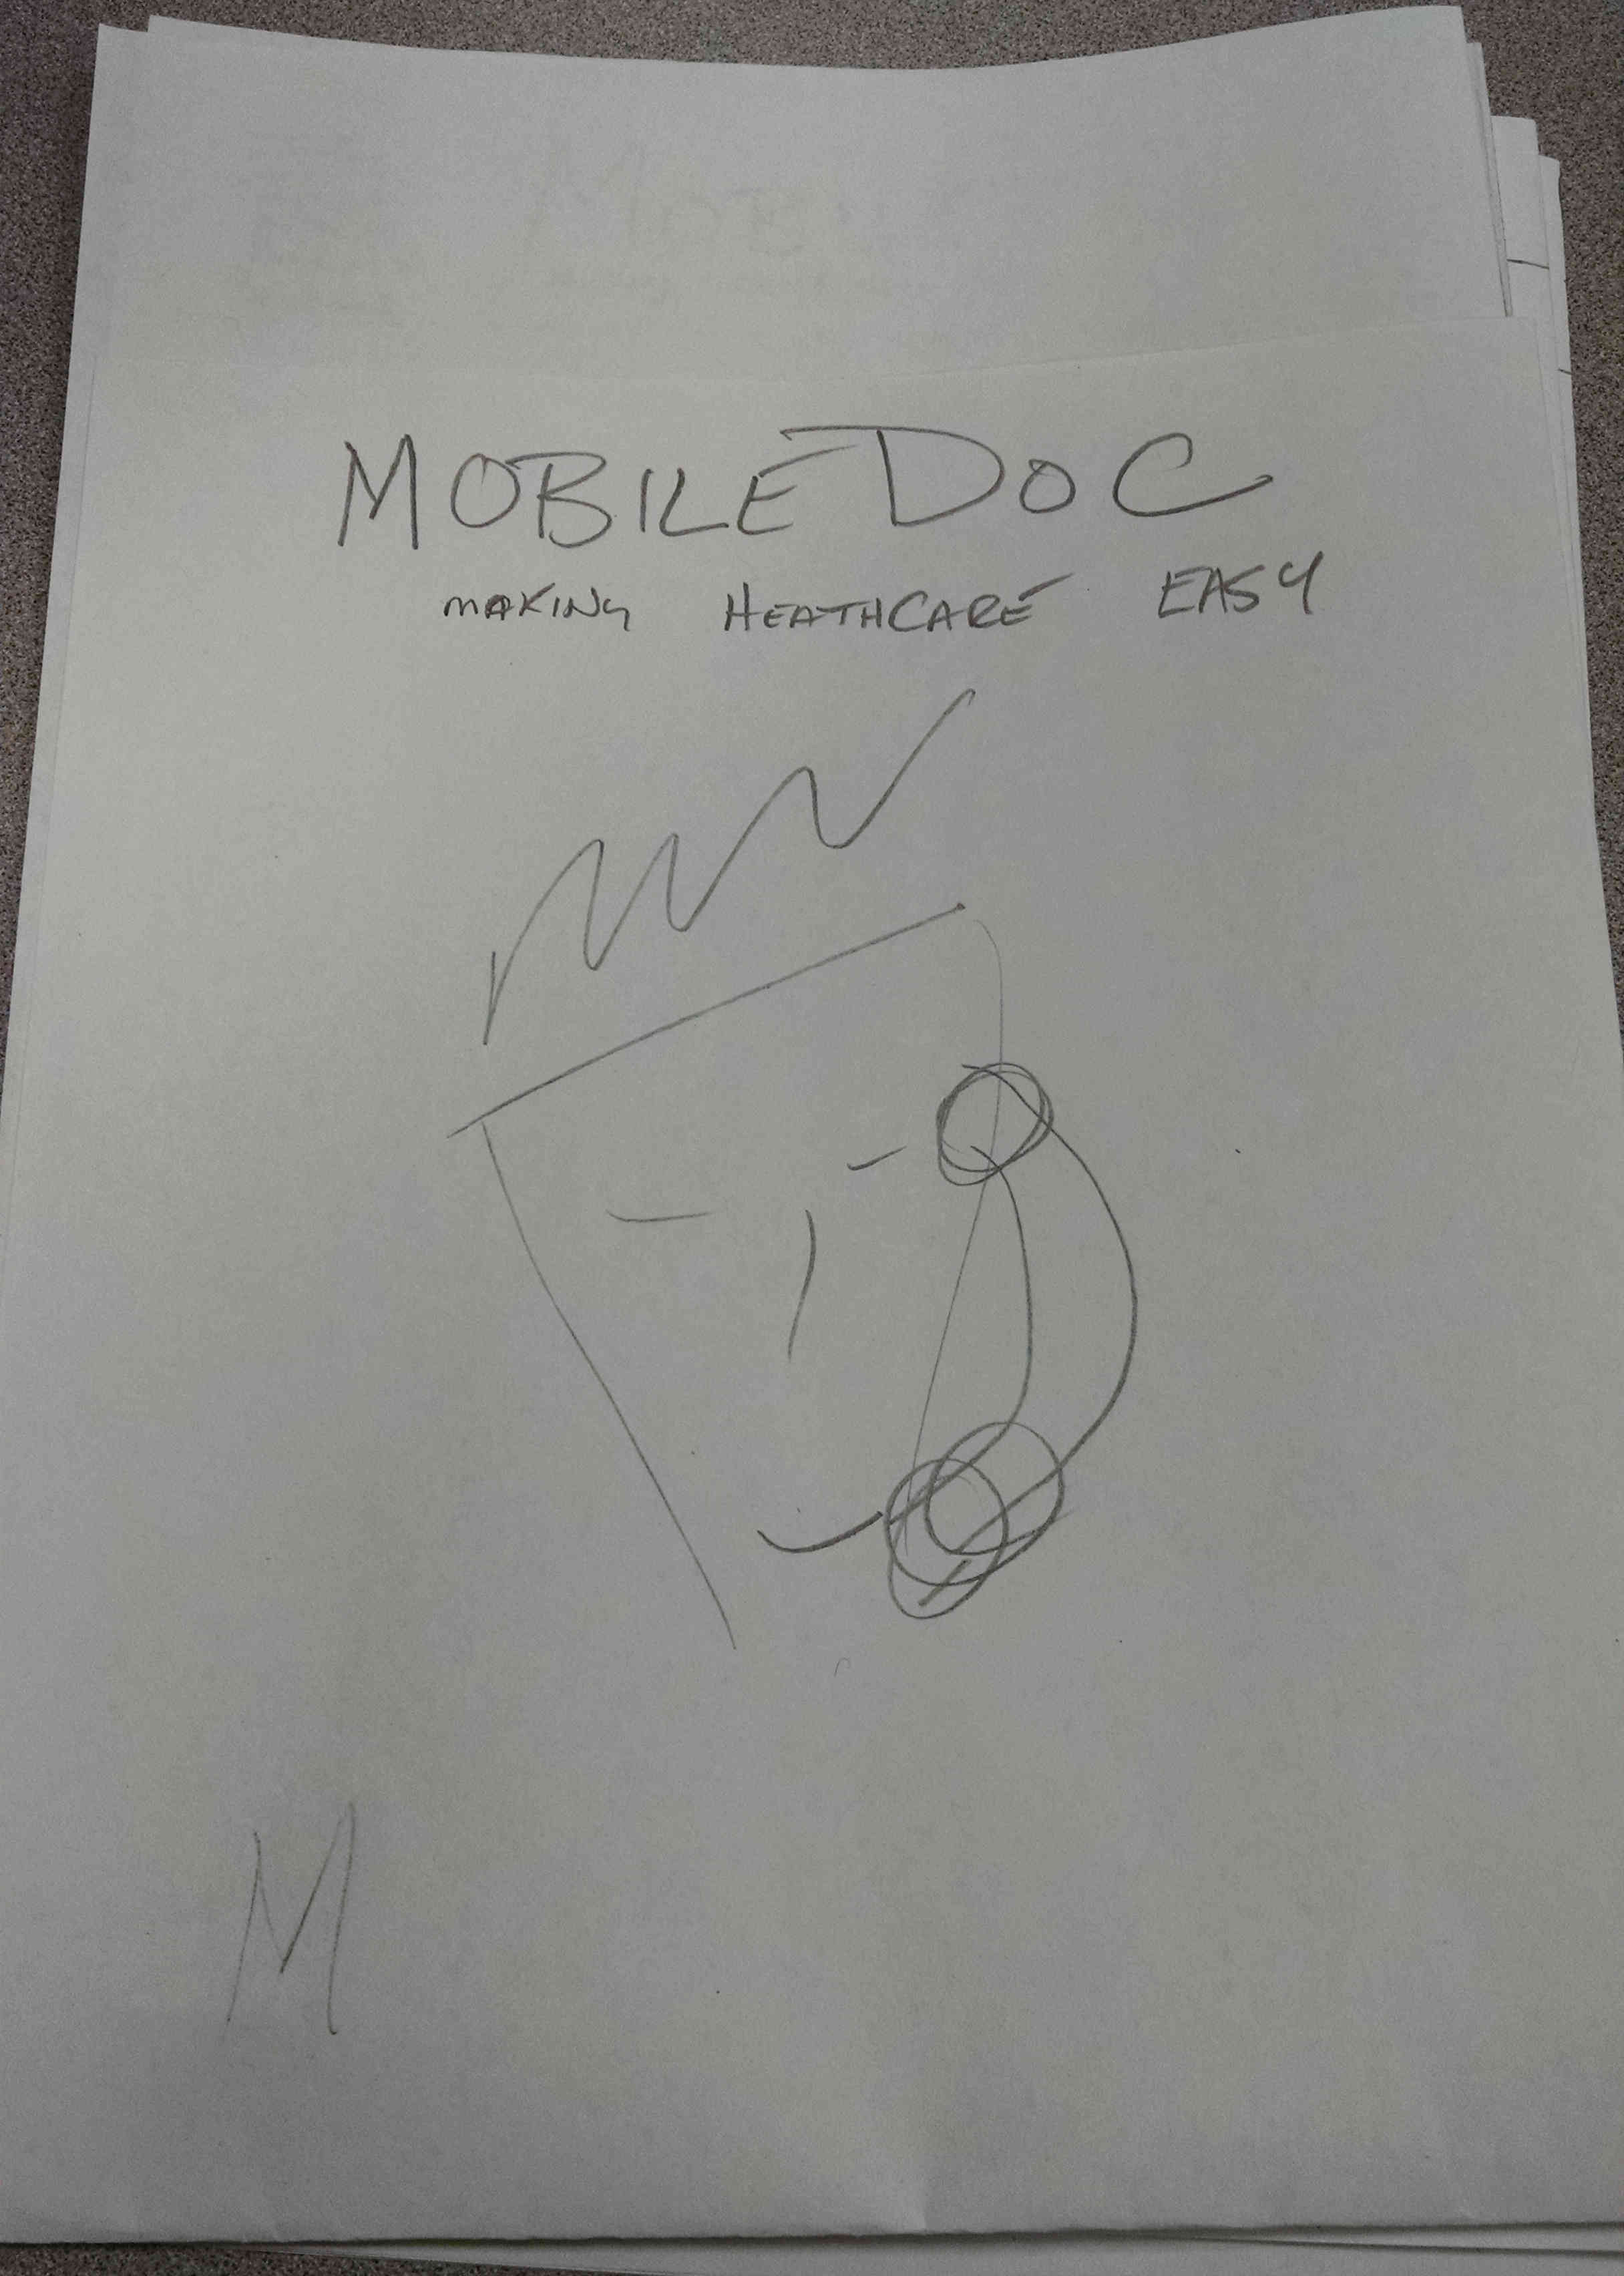 MOBILEDOC
MAKING HEATHCARE EASY
M